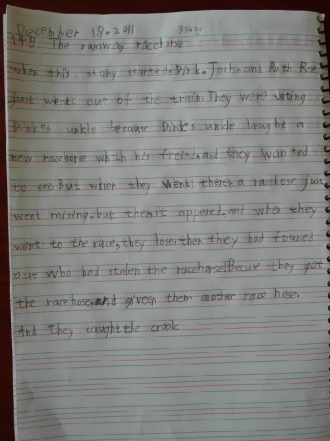 December 18, 2011
The runaway racehorse
when this story started, Dink, Josh and Ruth Rose
just went out of the train. They were visiting
Dink's unkle because Dink's unkle brought a
new racehorse with his freind, and they wanted
to see. But when they went there, a racehose just
went mising, but then it appered, and when they
went to the race, they lose, then they had founed
out who had stolen the racehorse! Becuse they got
the racehose, and giveen them another race hose.
And they caught the crook.